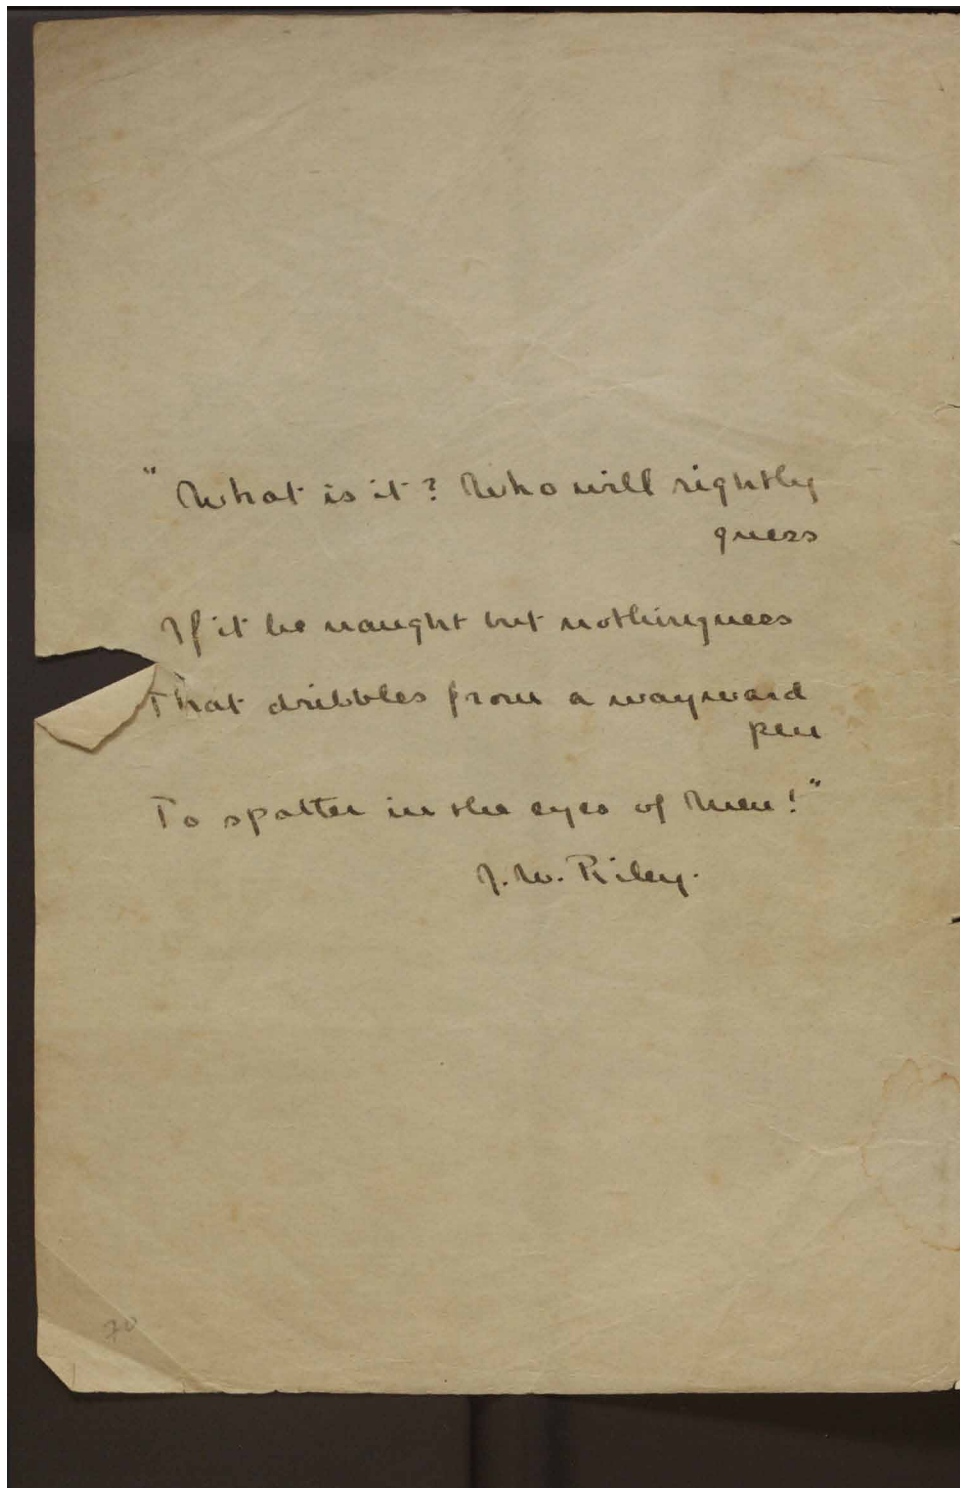 " What is it? Who will rightly
guess
If it be naught but nothingness
That dribbles from a wayward
pen
To spatter in the eyes of Men!"
J. W. Riley.
70